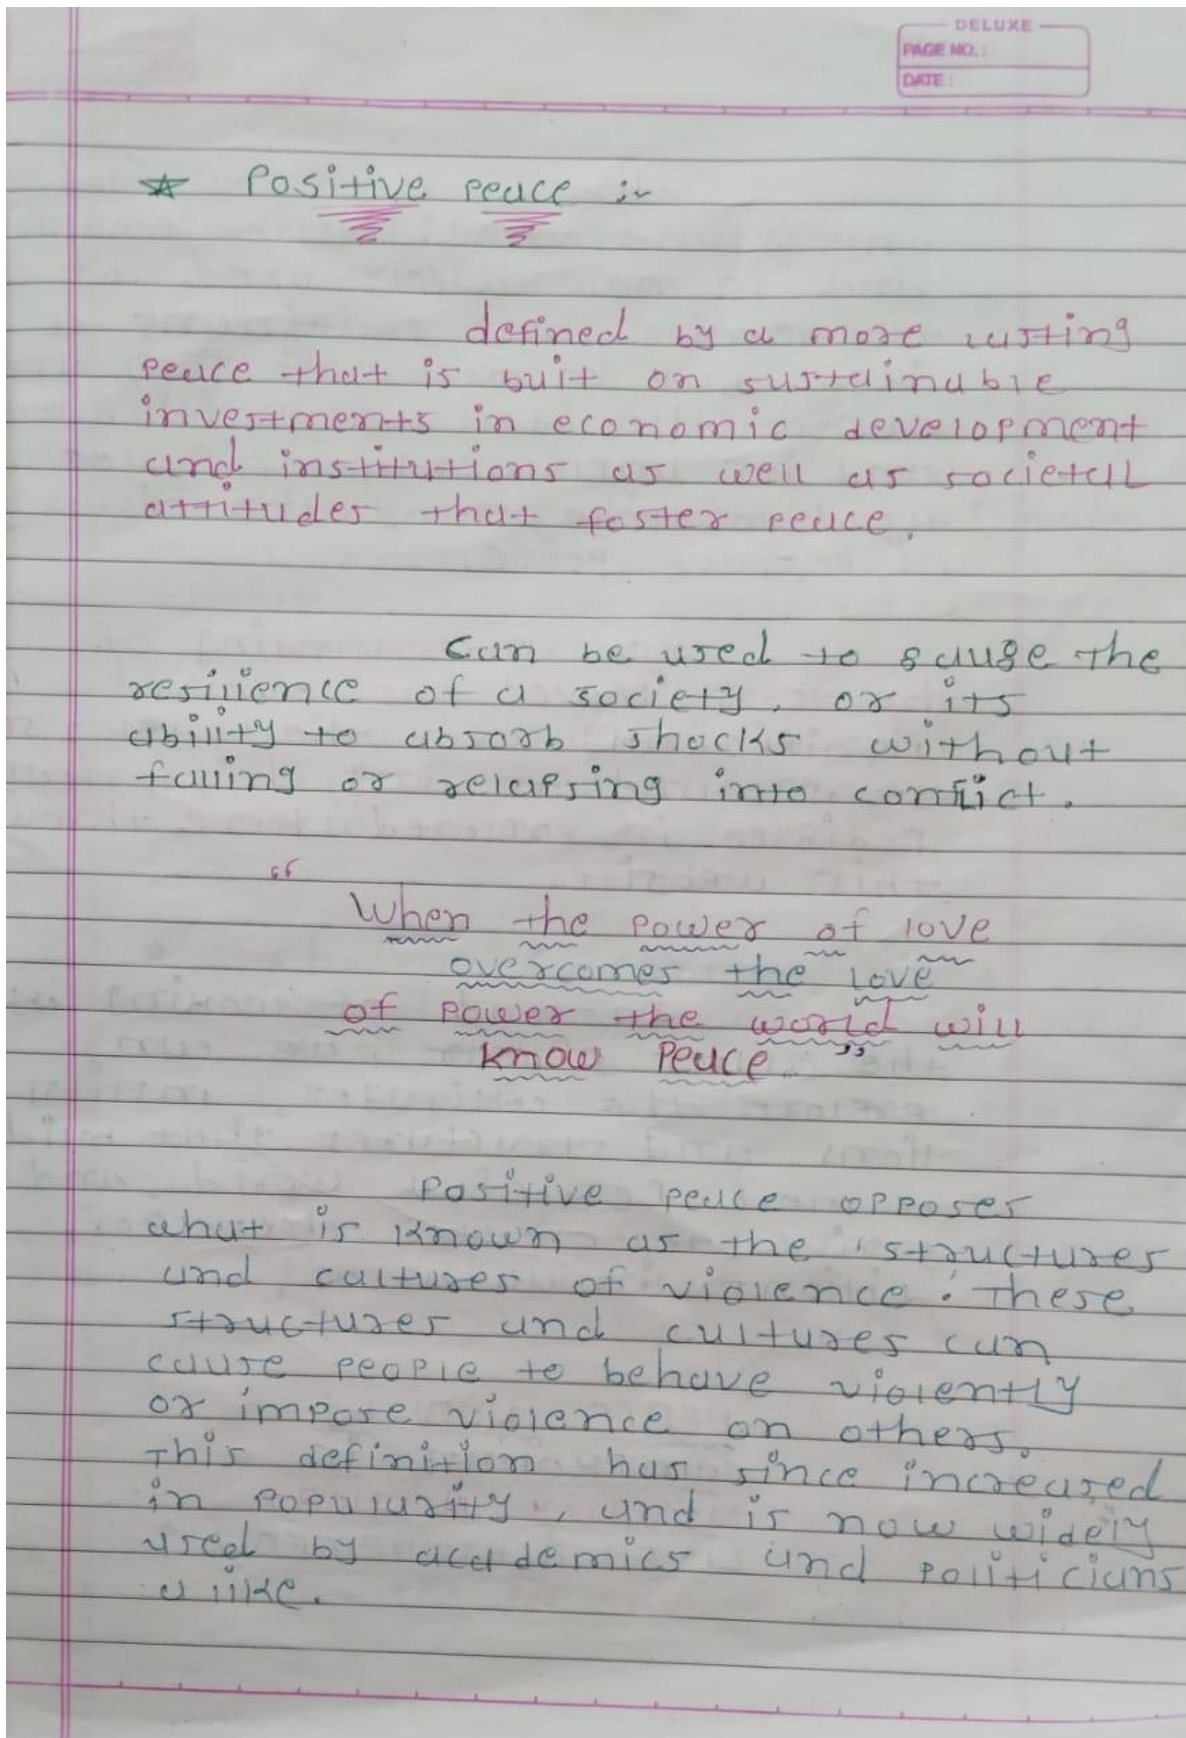 DELUXE
PAGE NO.:
DATE:
☆ Positive peace :-
defined by a more lasting
peace that is buit on sustainable
investments in economic development
and institutions as well as societal
attitudes that foster peace.
Can be used to gauge the
resilience of a society, or its
ability to absorb shocks without
falling or relapsing into conflict.
“
When the power of love
overcomes the love
of power the world will
know Peace.”
Positive peace opposes
what is known as the 'structures
and cultures of violence'. These
structures and cultures can
cause people to behave violently
or impose violence on others.
This definition has since increased
in popularity, and is now widely
used by academics and politicians
alike.